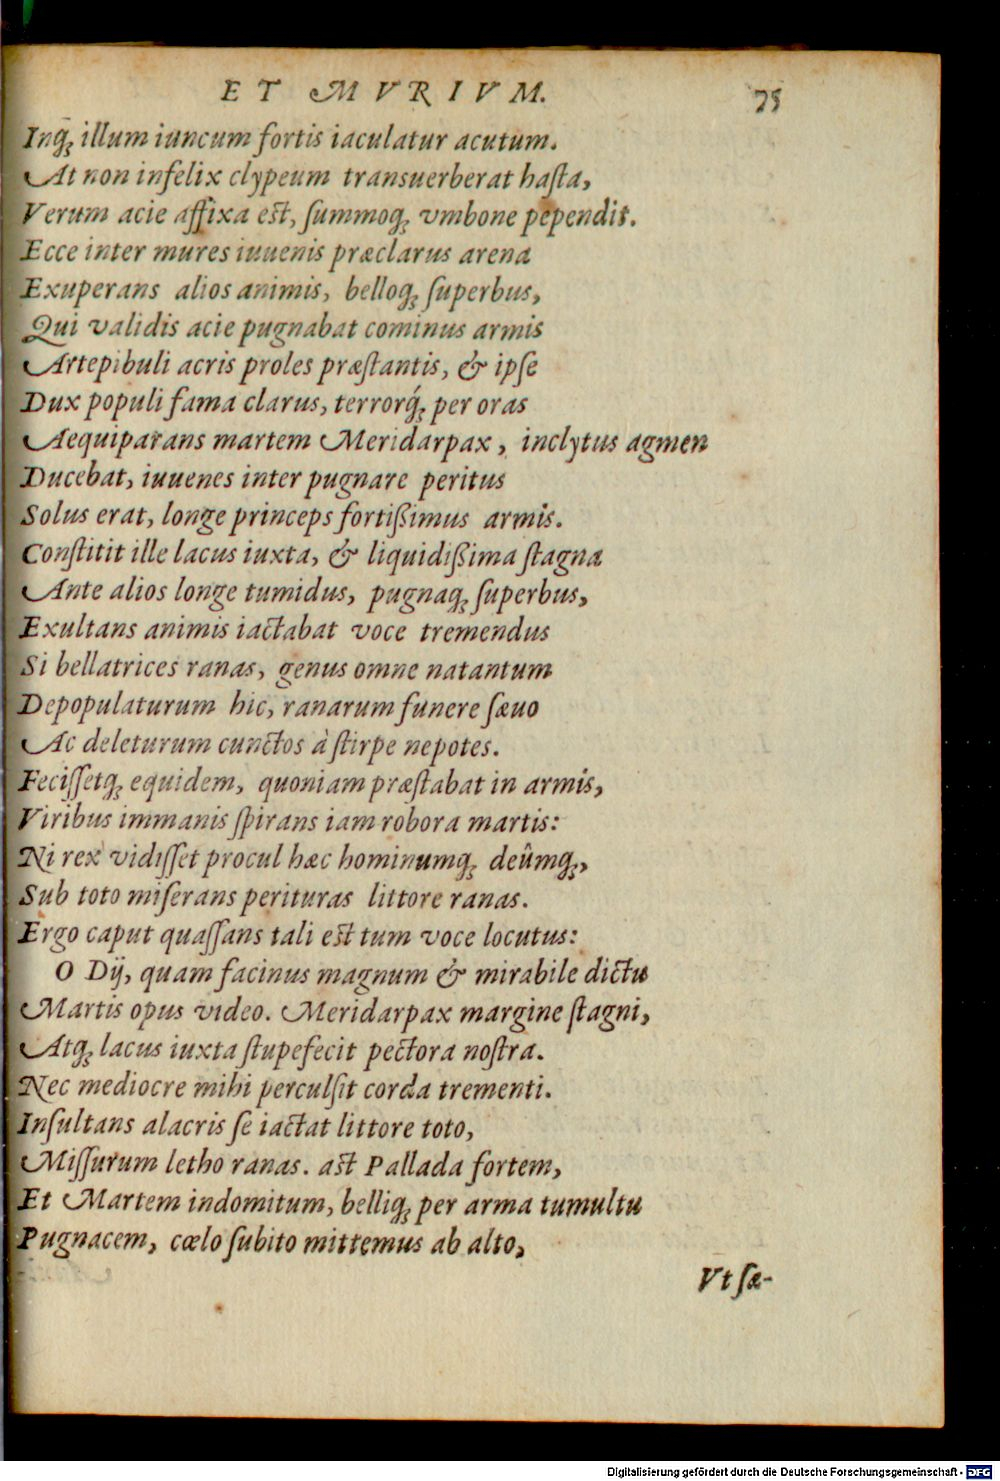 ET MVRIVM. 75
Inq; illum iuncum fortis iaculatur acutum.
At non infelix clypeum transuerberat hasta,
Verum acie affixa est, summoq; vmbone pependit.
Ecce inter mures iuuenis præclarus arena
Exuperans alios animis, belloq; superbus,
Qui validis acie pugnabat cominus armis
Artepibuli acris proles præstantis, & ipse
Dux populi fama clarus, terrorq́; per oras
Aequiparans martem Meridarpax, inclytus agmen
Ducebat, iuuenes inter pugnare peritus
Solus erat, longe princeps fortißimus armis.
Constitit ille lacus iuxta, & liquidißima stagna
Ante alios longe tumidus, pugnaq; superbus,
Exultans animis iactabat voce tremendus
Si bellatrices ranas, genus omne natantum
Depopulaturum hic, ranarum funere sæuo
Ac deleturum cunctos à stirpe nepotes.
Fecissetq; equidem, quoniam præstabat in armis,
Viribus immanis spirans iam robora martis:
Ni rex vidisset procul hæc hominumq; deûmq;,
Sub toto miserans perituras littore ranas.
Ergo caput quassans tali est tum voce locutus:
O Dij, quam facinus magnum & mirabile dictu
Martis opus video. Meridarpax margine stagni,
Atq; lacus iuxta stupefecit pectora nostra.
Nec mediocre mihi perculsit corda trementi.
Insultans alacris se iactat littore toto,
Missurum letho ranas. ast Pallada fortem,
Et Martem indomitum, belliq; per arma tumultu
Pugnacem, cœlo subito mittemus ab alto,
Vt sæ-
Digitalisierung gefördert durch die Deutsche Forschungsgemeinschaft - DFG